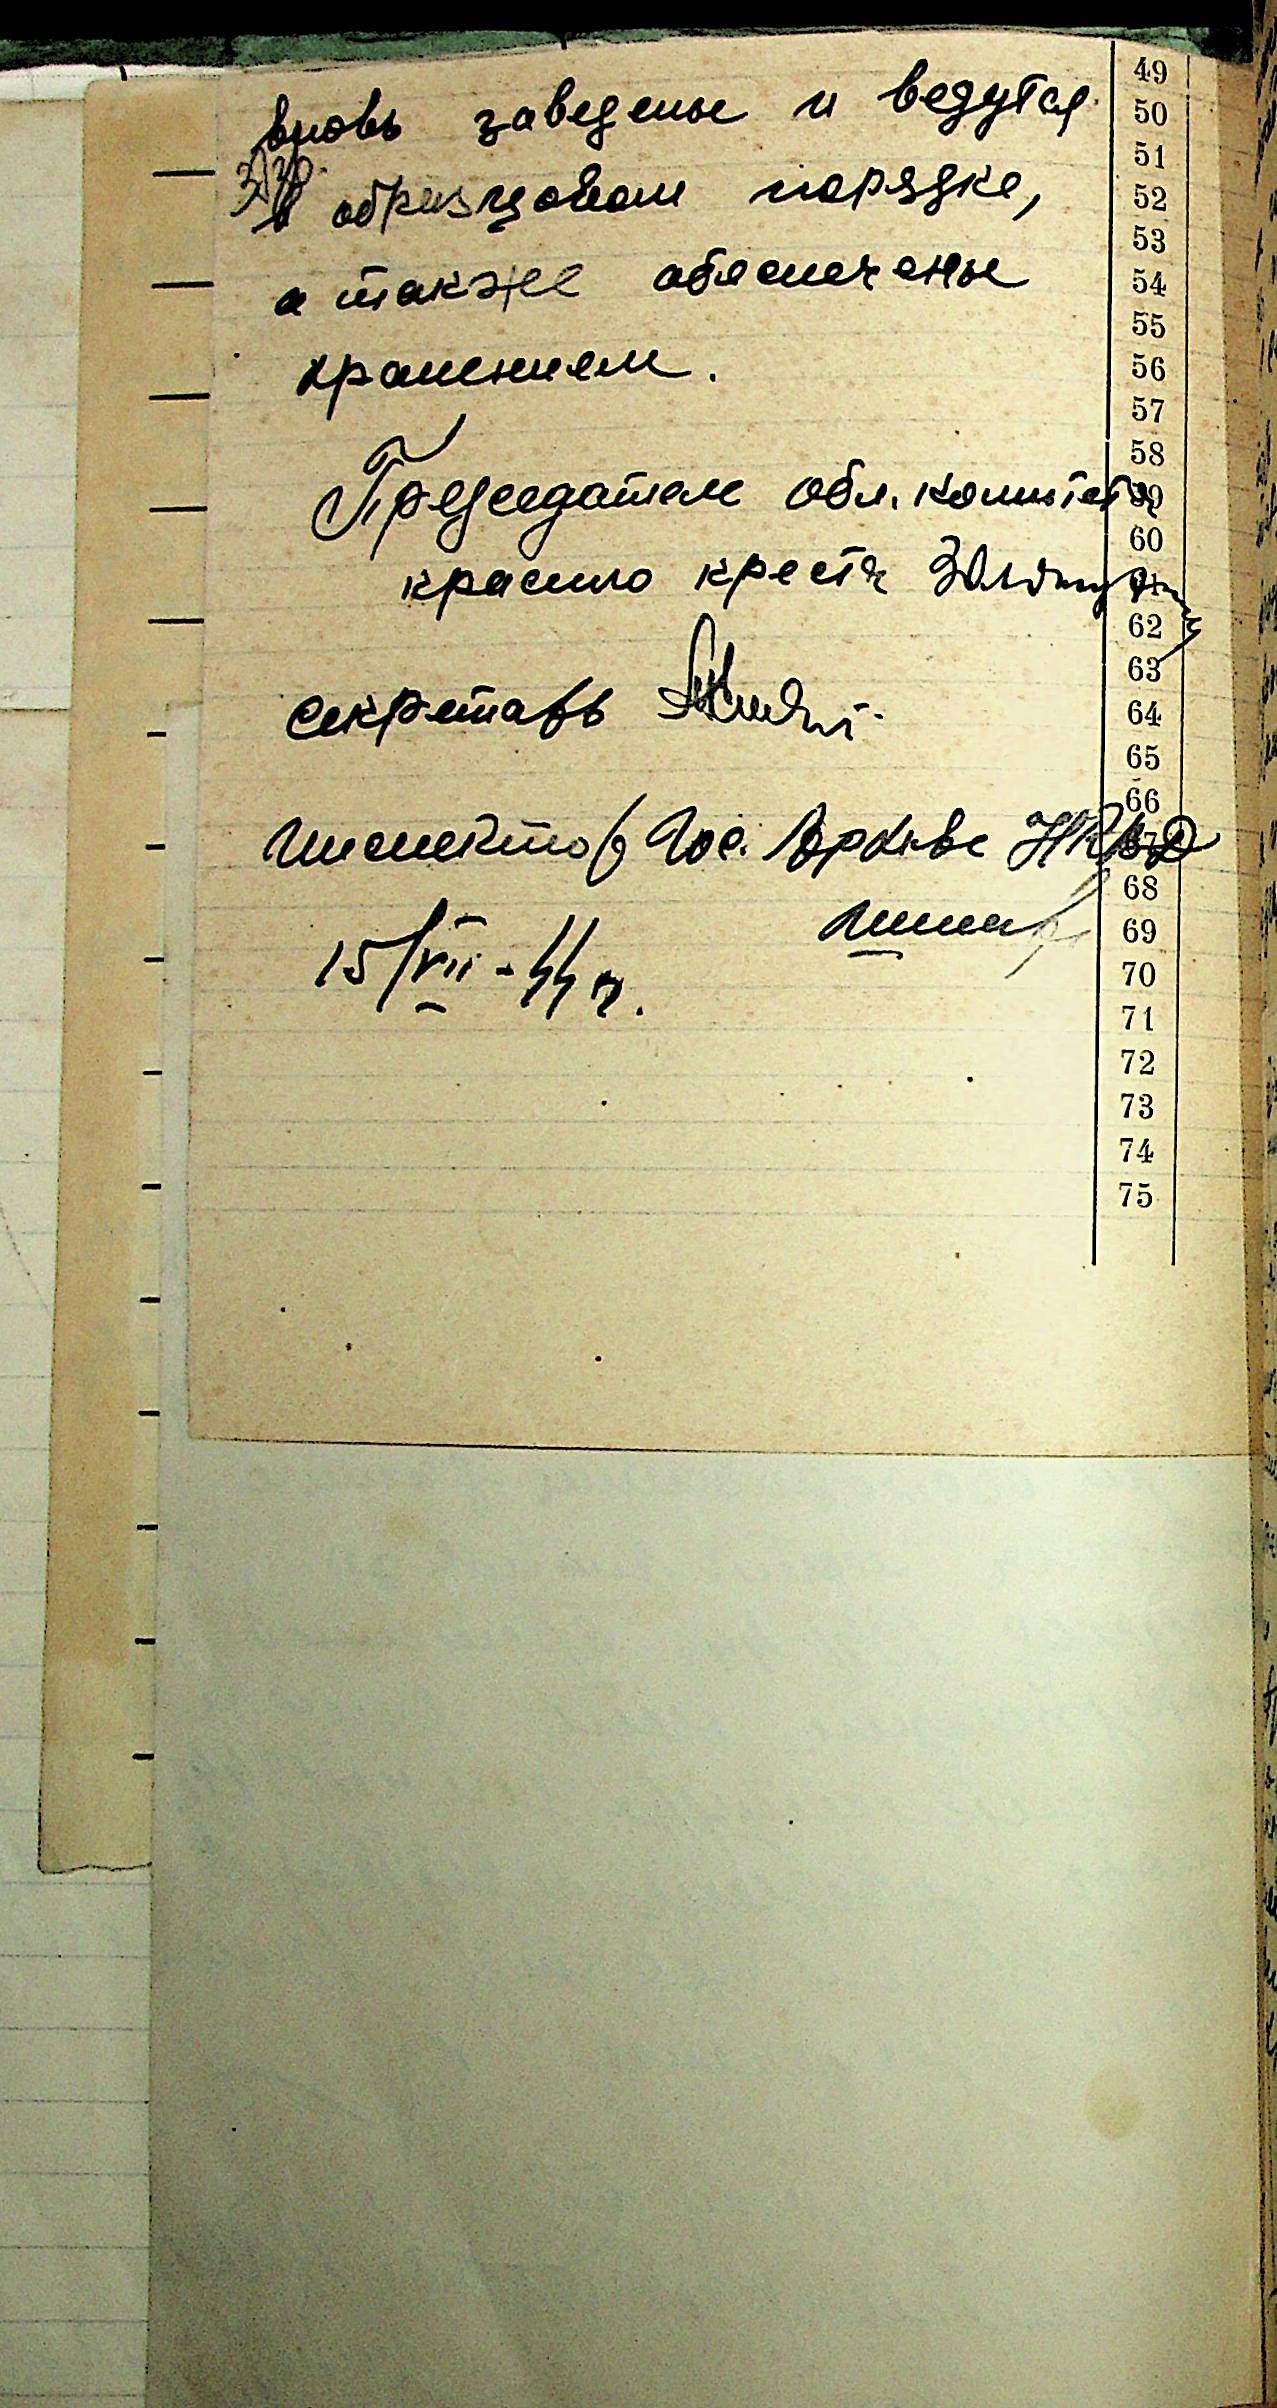 вновь заведены и ведутся
в образцовом порядке,
а также обеспечены
хранением.
Председатель обл. комитета
красного креста
секретарь
инспектор Гос. Архива НКВД
15/VII-44 г.
49
50
51
52
53
54
55
56
57
58
59
60
61
62
63
64
65
66
67
68
69
70
71
72
73
74
75